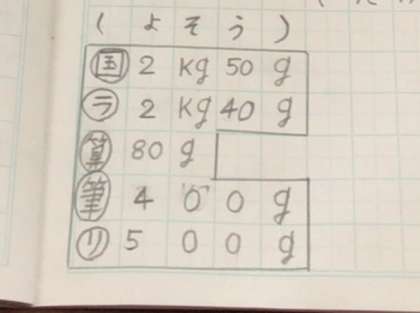 (よそう)
国 2kg50g
ラ 2kg40g
算 80g
筆 400g
リ 500g